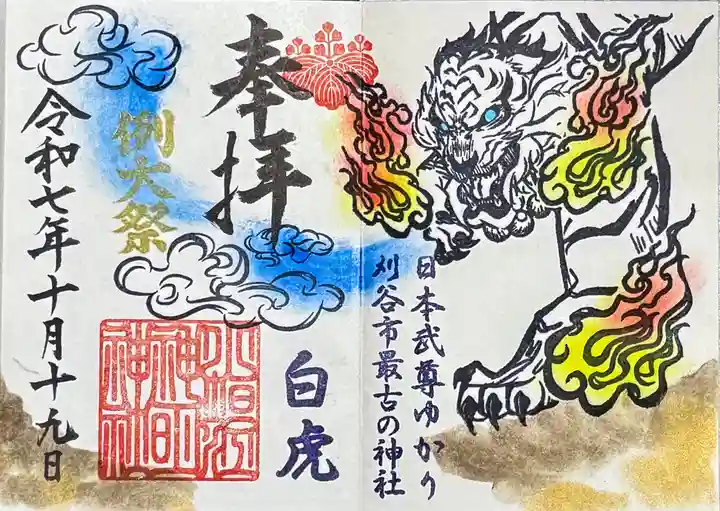 日本武尊ゆかり
刈谷市最古の神社
奉拝
白虎
例大祭
令和七年十月十九日